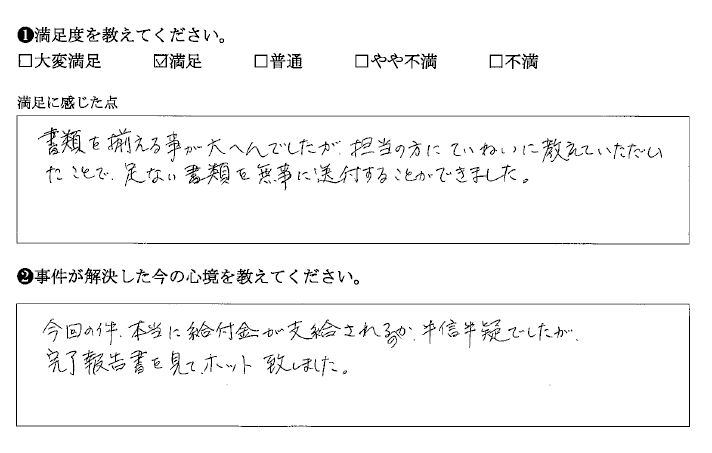 ❶満足度を教えてください。
□大変満足 ☑満足 □普通 □やや不満 □不満
満足に感じた点
書類を揃える事が大へんでしたが、担当の方にていねいに教えていただい
たことで、足ない書類を無事に送付することができました。
❷事件が解決した今の心境を教えてください。
今回の件、本当に給付金が支給されるのか、半信半疑でしたが、
完了報告書を見て、ホット致しました。